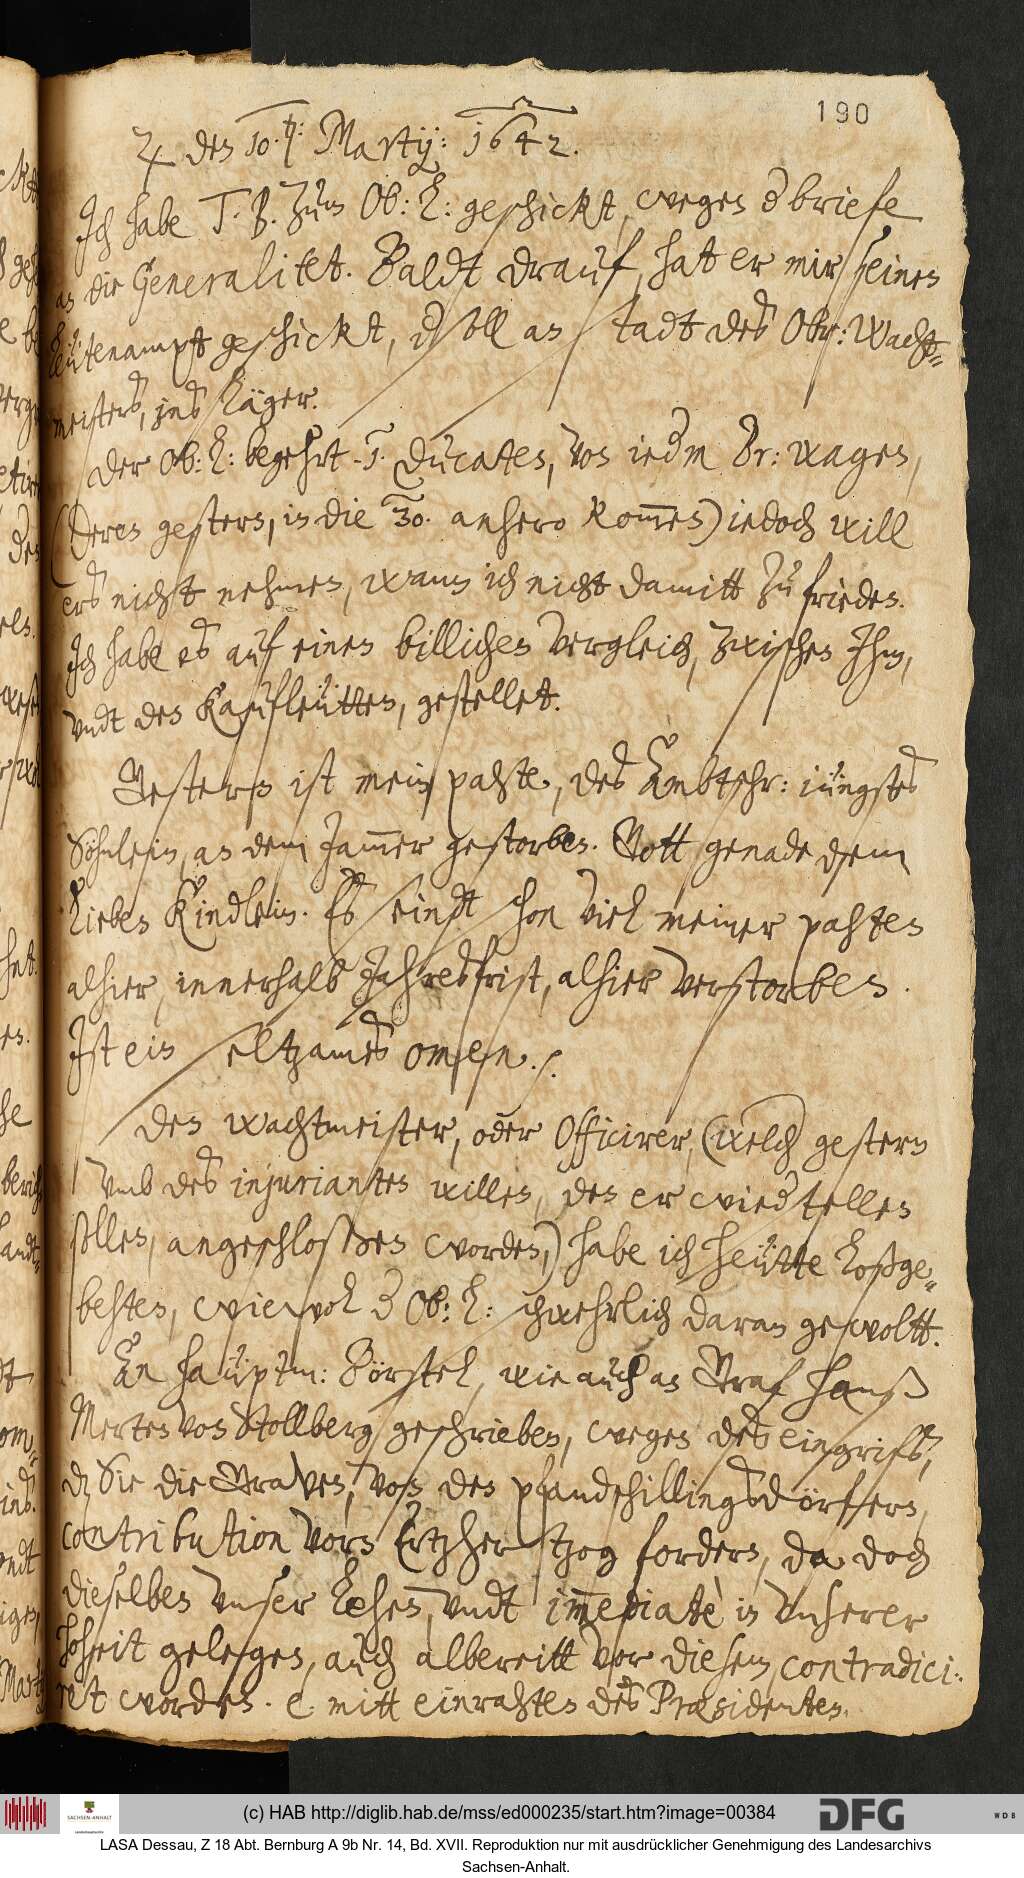 190
♃ den 10. t: Martij: 1642.
Ich habe T. B. zum Ob: L: geschickt, wegen d briefe
an die Generalitet. Baldt drauf, hat er mir seinen
Leütenampt geschickt, d soll an stadt des Obr: Wacht-
meisters, ins Läger.
Der Ob: L: begehrt .1. Ducaten, von iedem Br: wagen,
(deren gestern, in die 30. anhero kommen) iedoch will
ers nicht nehmen, wann ich nicht damitt zu frieden.
Ich habe es auf einen billichen vergleich, zwischen Ihm,
undt den Kaufleütten, gestellet.
Gestern ist mein pahte, des Ambtschr: iüngstes
Söhnlein, an dem Jammer gestorben. Gott genade dem
lieben Kindlein. Es seindt schon viel meiner pahten
alhier, innerhalb Jahresfrist, alhier verstorben.
Ist ein seltzames omen. /.
Den wachtmeister, oder Officirer, (welch gestern
umb des injurianten willen, den er wied stellen
sollen, angeschloßen worden,) habe ich heütte loßge-
behten, wiewol d Ob: L: schwehrlich daran gewoltt.
An Haüptm: Börstel, wie auch an Graf Hanß
Merten von Stollberg geschrieben, wegen des eingrifs,
dz Sie die Graven, von den pfandschillingsdörffern,
contribution vorn Ertzhertzog fordern, da doch
dieselben unser Lehen, undt immediatè in unserer
hoheit gelegen, auch albereitt vor diesem contradici-
ret worden. e. mitt einrahten des Præsidenten.
(c) HAB http://diglib.hab.de/mss/ed000235/start.htm?image=00384
SACHSEN-ANHALT
DFG
WDB
LASA Dessau, Z 18 Abt. Bernburg A 9b Nr. 14, Bd. XVII. Reproduktion nur mit ausdrücklicher Genehmigung des Landesarchivs
Sachsen-Anhalt.